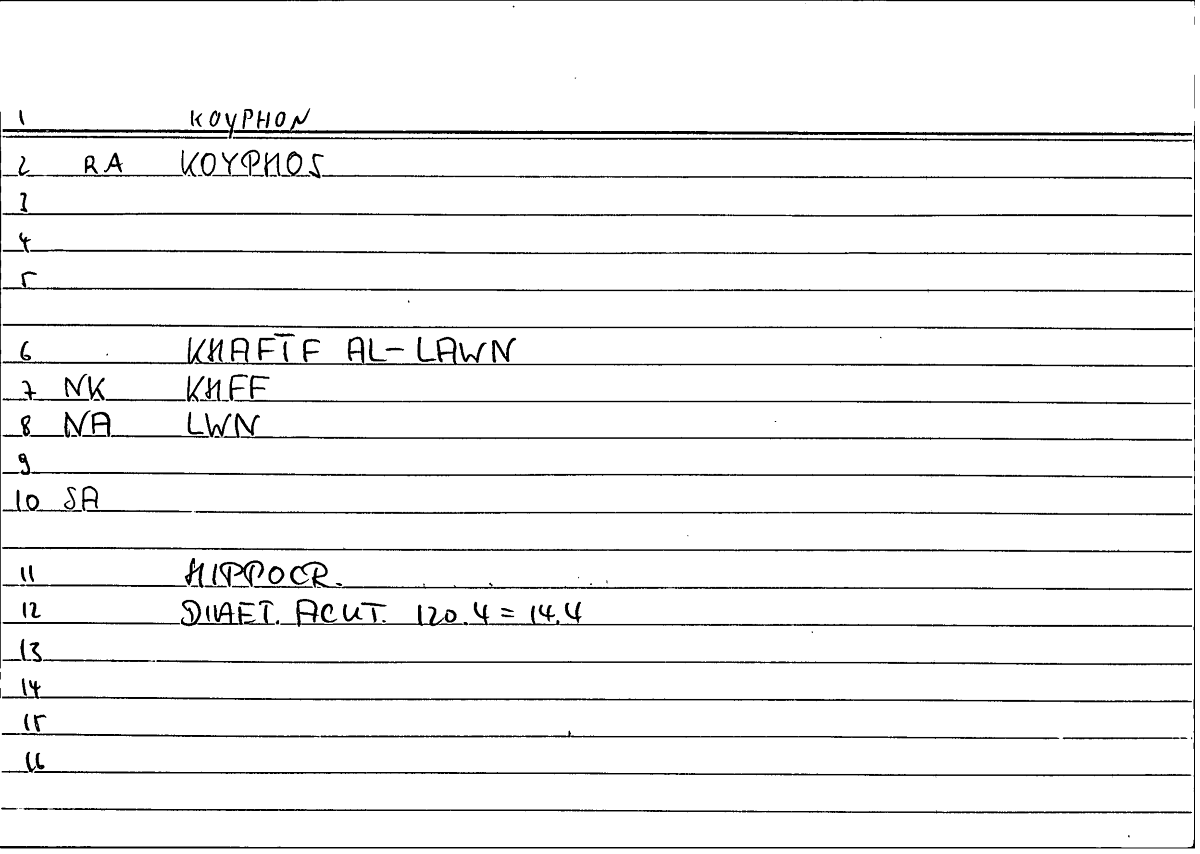 1 KOYPHON
2 RA KOYPHOS
3
4
5
6 KHAFĪF AL-LAWN
7 NK KHFF
8 NA LWN
9
10 SA
11 HIPPOCR.
12 DIAET. ACUT. 120.4 = 14.4
13
14
15
16